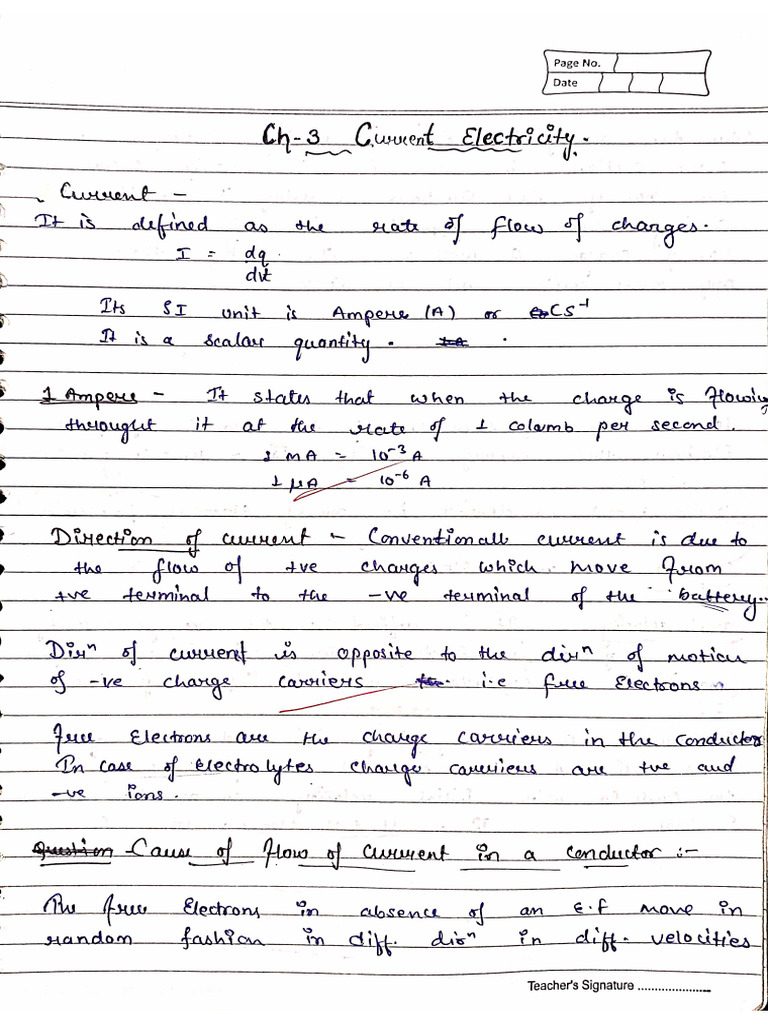 Page No.
Date
Ch-3 Current Electricity.
Current -
It is defined as the rate of flow of charges.
I = dq
dt
Its SI unit is Ampere (A) or Cs⁻¹
It is a scalar quantity.
1 Ampere - It states that when the charge is flowing
throught it at the rate of 1 colamb per second.
1 mA = 10⁻³ A
1 μA = 10⁻⁶ A
Direction of current - Conventionall current is due to
the flow of +ve charges which move from
+ve terminal to the -ve terminal of the battery.
Dirⁿ of current is opposite to the dirⁿ of motion
of -ve charge carriers i.e free Electrons.
Free Electrons are the charge carriers in the conductor
In case of electrolytes charge carriers are +ve and
-ve ions.
Question Cause of Flow of current in a conductor :-
The free Electrons in absence of an E.f move in
random fashion in diff. dirⁿ in diff. velocities
Teacher's Signature ....................